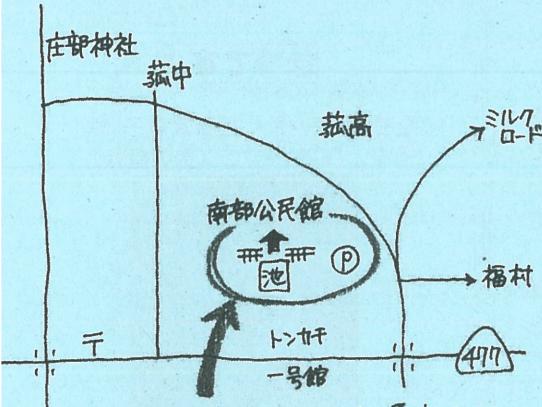 庄部神社
菰中
菰高
ミルク
ロード
南部公民館
池
P
福村
〒
トンカチ
一号館
477